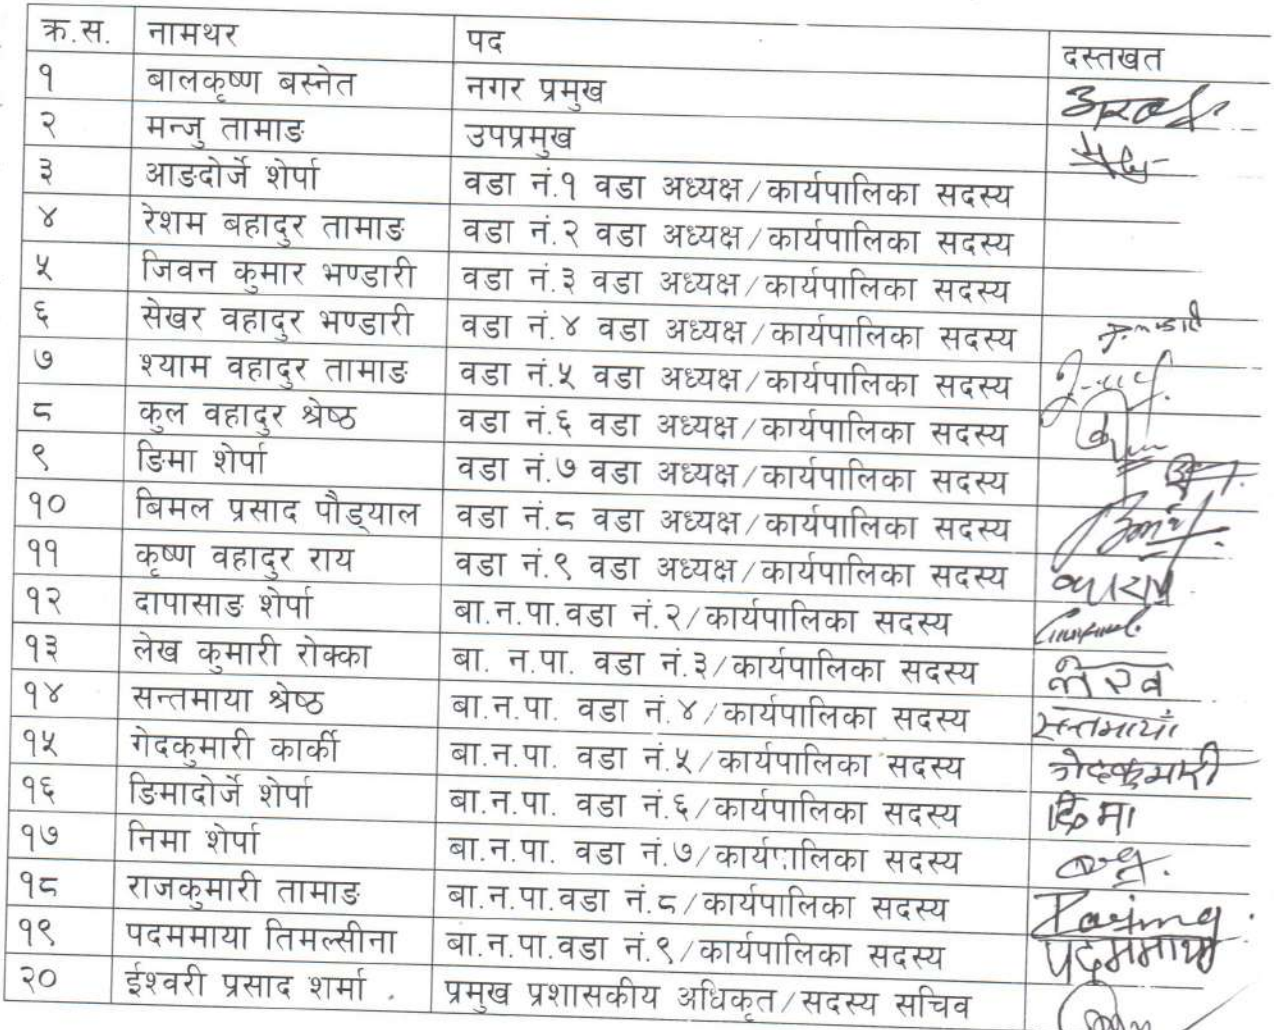 क्र.स. नामथर पद दस्तखत
१ बालकृष्ण बस्नेत नगर प्रमुख
२ मन्जु तामाङ उपप्रमुख
३ आङदोर्जे शेर्पा वडा नं.१ वडा अध्यक्ष/कार्यपालिका सदस्य
४ रेशम बहादुर तामाङ वडा नं.२ वडा अध्यक्ष/कार्यपालिका सदस्य
५ जिवन कुमार भण्डारी वडा नं.३ वडा अध्यक्ष/कार्यपालिका सदस्य
६ सेखर वहादुर भण्डारी वडा नं.४ वडा अध्यक्ष/कार्यपालिका सदस्य
७ श्याम वहादुर तामाङ वडा नं.५ वडा अध्यक्ष/कार्यपालिका सदस्य
८ कुल वहादुर श्रेष्ठ वडा नं.६ वडा अध्यक्ष/कार्यपालिका सदस्य
९ ङिमा शेर्पा वडा नं.७ वडा अध्यक्ष/कार्यपालिका सदस्य
१० बिमल प्रसाद पौड्याल वडा नं.८ वडा अध्यक्ष/कार्यपालिका सदस्य
११ कृष्ण वहादुर राय वडा नं.९ वडा अध्यक्ष/कार्यपालिका सदस्य
१२ दापासाङ शेर्पा बा.न.पा.वडा नं.२/कार्यपालिका सदस्य
१३ लेख कुमारी रोक्का बा. न.पा. वडा नं.३/कार्यपालिका सदस्य
१४ सन्तमाया श्रेष्ठ बा.न.पा. वडा नं.४/कार्यपालिका सदस्य सन्तमाया
१५ गेदकुमारी कार्की बा.न.पा. वडा नं.५/कार्यपालिका सदस्य गेदकुमारी
१६ ङिमादोर्जे शेर्पा बा.न.पा. वडा नं.६/कार्यपालिका सदस्य ङिमा
१७ निमा शेर्पा बा.न.पा. वडा नं.७/कार्यपालिका सदस्य
१८ राजकुमारी तामाङ बा.न.पा.वडा नं.८/कार्यपालिका सदस्य
१९ पदममाया तिमल्सीना बा.न.पा.वडा नं.९/कार्यपालिका सदस्य पदममाया
२० ईश्वरी प्रसाद शर्मा . प्रमुख प्रशासकीय अधिकृत/सदस्य सचिव